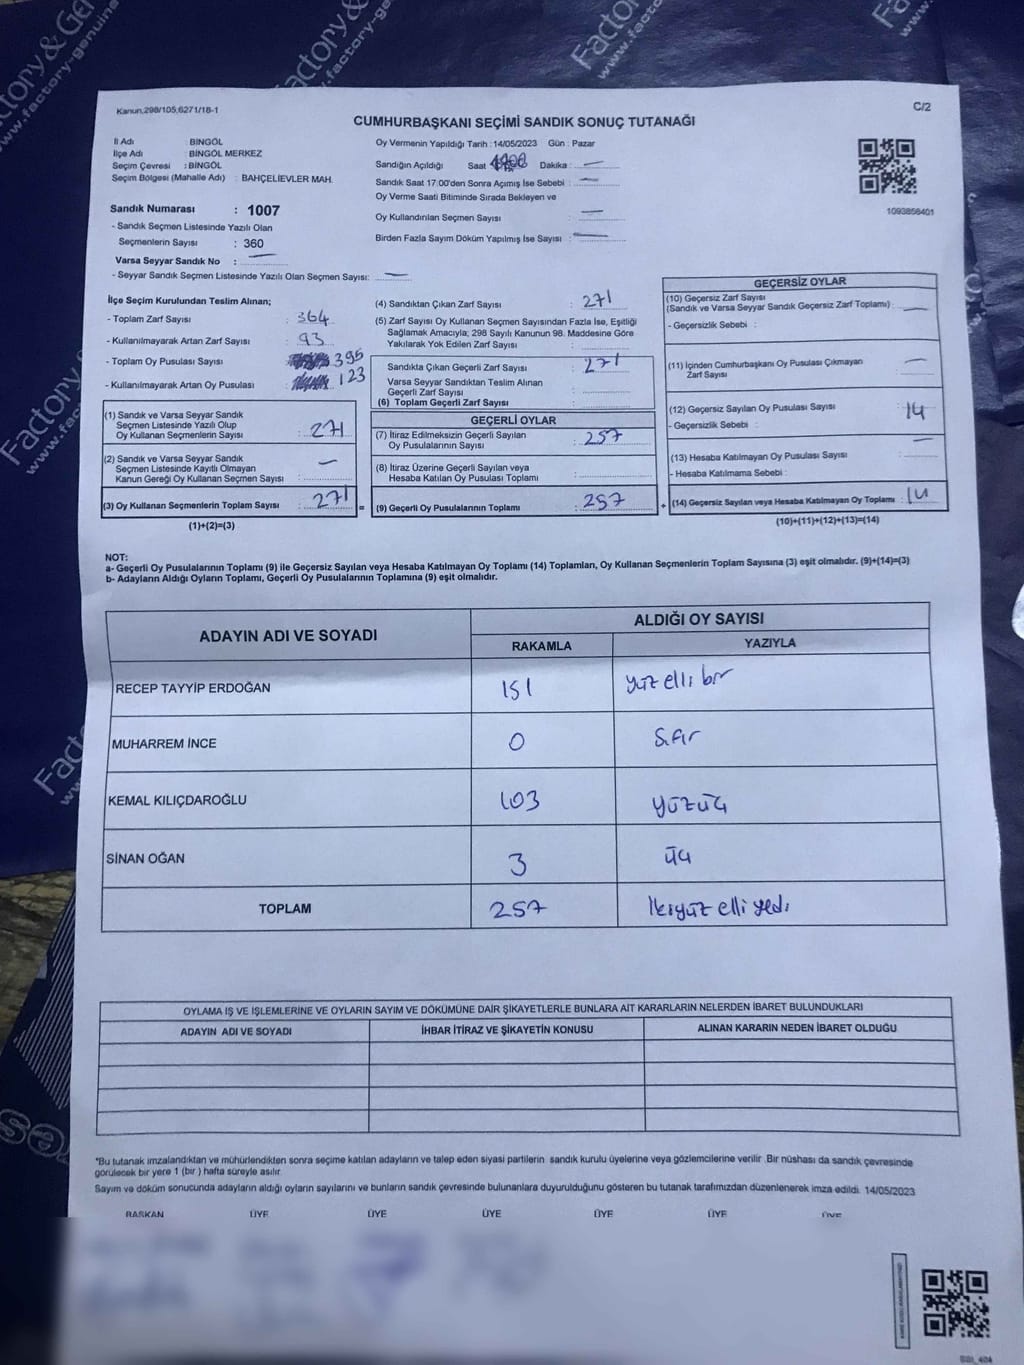 Factory & Ge
www.factory-genuine
Kanun.298/105;6271/18-1
C/2
CUMHURBAŞKANI SEÇİMİ SANDIK SONUÇ TUTANAĞI
İl Adı : BİNGÖL
İlçe Adı : BİNGÖL MERKEZ
Seçim Çevresi : BİNGÖL
Seçim Bölgesi (Mahalle Adı) : BAHÇELİEVLER MAH.
Sandık Numarası : 1007
- Sandık Seçmen Listesinde Yazılı Olan
Seçmenlerin Sayısı : 360
Varsa Seyyar Sandık No : —
- Seyyar Sandık Seçmen Listesinde Yazılı Olan Seçmen Sayısı: —
Oy Vermenin Yapıldığı Tarih : 14/05/2023 Gün : Pazar
Sandığın Açıldığı Saat Dakika : —
Sandık Saat 17:00'den Sonra Açımış İse Sebebi : —
Oy Verme Saati Bitiminde Sırada Bekleyen ve
Oy Kullandırılan Seçmen Sayısı : —
Birden Fazla Sayım Döküm Yapılmış İse Sayısı : —
1093856401
İlçe Seçim Kurulundan Teslim Alınan;
- Toplam Zarf Sayısı : 364
- Kullanılmayarak Artan Zarf Sayısı : 93
- Toplam Oy Pusulası Sayısı : 395
- Kullanılmayarak Artan Oy Pusulası : 123
(1) Sandık ve Varsa Seyyar Sandık
Seçmen Listesinde Yazılı Olup
Oy Kullanan Seçmenlerin Sayısı : 271
(2) Sandık ve Varsa Seyyar Sandık
Seçmen Listesinde Kayıtlı Olmayan
Kanun Gereği Oy Kullanan Seçmen Sayısı : —
(3) Oy Kullanan Seçmenlerin Toplam Sayısı : 271 =
(1)+(2)=(3)
(4) Sandıktan Çıkan Zarf Sayısı : 271
(5) Zarf Sayısı Oy Kullanan Seçmen Sayısından Fazla İse, Eşitliği
Sağlamak Amacıyla; 298 Sayılı Kanunun 98. Maddesine Göre
Yakılarak Yok Edilen Zarf Sayısı :
Sandıkta Çıkan Geçerli Zarf Sayısı : 271
Varsa Seyyar Sandıktan Teslim Alınan
Geçerli Zarf Sayısı :
(6) Toplam Geçerli Zarf Sayısı :
GEÇERLİ OYLAR
(7) İtiraz Edilmeksizin Geçerli Sayılan
Oy Pusulalarının Sayısı : 257
(8) İtiraz Üzerine Geçerli Sayılan veya
Hesaba Katılan Oy Pusulası Toplamı :
(9) Geçerli Oy Pusulalarının Toplamı : 257 +
GEÇERSİZ OYLAR
(10) Geçersiz Zarf Sayısı
(Sandık ve Varsa Seyyar Sandık Geçersiz Zarf Toplamı) : —
- Geçersizlik Sebebi :
(11) İçinden Cumhurbaşkanı Oy Pusulası Çıkmayan
Zarf Sayısı : —
(12) Geçersiz Sayılan Oy Pusulası Sayısı : 14
- Geçersizlik Sebebi :
(13) Hesaba Katılmayan Oy Pusulası Sayısı : —
- Hesaba Katılmama Sebebi :
(14) Geçersiz Sayılan veya Hesaba Katılmayan Oy Toplamı : 14
(10)+(11)+(12)+(13)=(14)
NOT:
a- Geçerli Oy Pusulalarının Toplamı (9) ile Geçersiz Sayılan veya Hesaba Katılmayan Oy Toplamı (14) Toplamları, Oy Kullanan Seçmenlerin Toplam Sayısına (3) eşit olmalıdır. (9)+(14)=(3)
b- Adayların Aldığı Oyların Toplamı, Geçerli Oy Pusulalarının Toplamına (9) eşit olmalıdır.
ADAYIN ADI VE SOYADI ALDIĞI OY SAYISI
RAKAMLA YAZIYLA
RECEP TAYYİP ERDOĞAN 151 yüz elli bir
MUHARREM İNCE 0 Sıfır
KEMAL KILIÇDAROĞLU 103 yüzüç
SİNAN OĞAN 3 üç
TOPLAM 257 İkiyüz elli yedi
OYLAMA İŞ VE İŞLEMLERİNE VE OYLARIN SAYIM VE DÖKÜMÜNE DAİR ŞİKAYETLERLE BUNLARA AİT KARARLARIN NELERDEN İBARET BULUNDUKLARI
ADAYIN ADI VE SOYADI İHBAR İTİRAZ VE ŞİKAYETİN KONUSU ALINAN KARARIN NEDEN İBARET OLDUĞU
*Bu tutanak imzalandıktan ve mühürlendikten sonra seçime katılan adayların ve talep eden siyasi partilerin sandık kurulu üyelerine veya gözlemcilerine verilir .Bir nüshası da sandık çevresinde
görülecek bir yere 1 (bir ) hafta süreyle asılır.
Sayım ve döküm sonucunda adayların aldığı oyların sayılarını ve bunların sandık çevresinde bulunanlara duyurulduğunu gösteren bu tutanak tarafımızdan düzenlenerek imza edildi. 14/05/2023
BAŞKAN ÜYE ÜYE ÜYE ÜYE ÜYE ÜYE